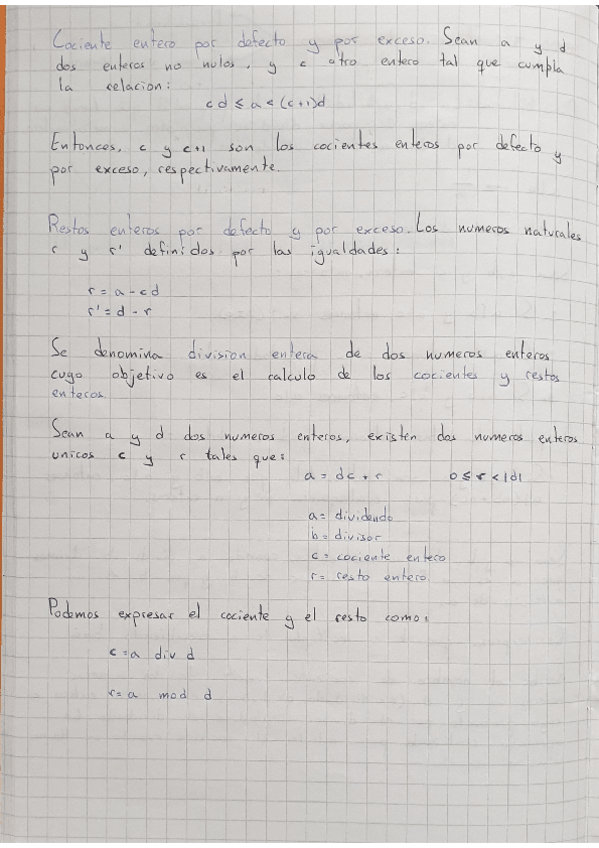 Cociente entero por defecto y por exceso. Sean a y d
dos enteros no nulos, y c otro entero tal que cumpla
la relacion:
cd ≤ a < (c+1)d
Entonces, c y c+1 son los cocientes enteros por defecto y
por exceso, respectivamente.
Restos enteros por defecto y por exceso. Los numeros naturales
r y r' definidos por las igualdades:
r = a - cd
r' = d - r
Se denomina division entera de dos numeros enteros
cuyo objetivo es el calculo de los cocientes y restos
enteros
Sean a y d dos numeros enteros, existen dos numeros enteros
unicos c y r tales que:
a = dc + r 0 ≤ r < |d|
a = dividendo
b = divisor
c = cociente entero
r = resto entero.
Podemos expresar el cociente y el resto como:
c = a div d
r = a mod d